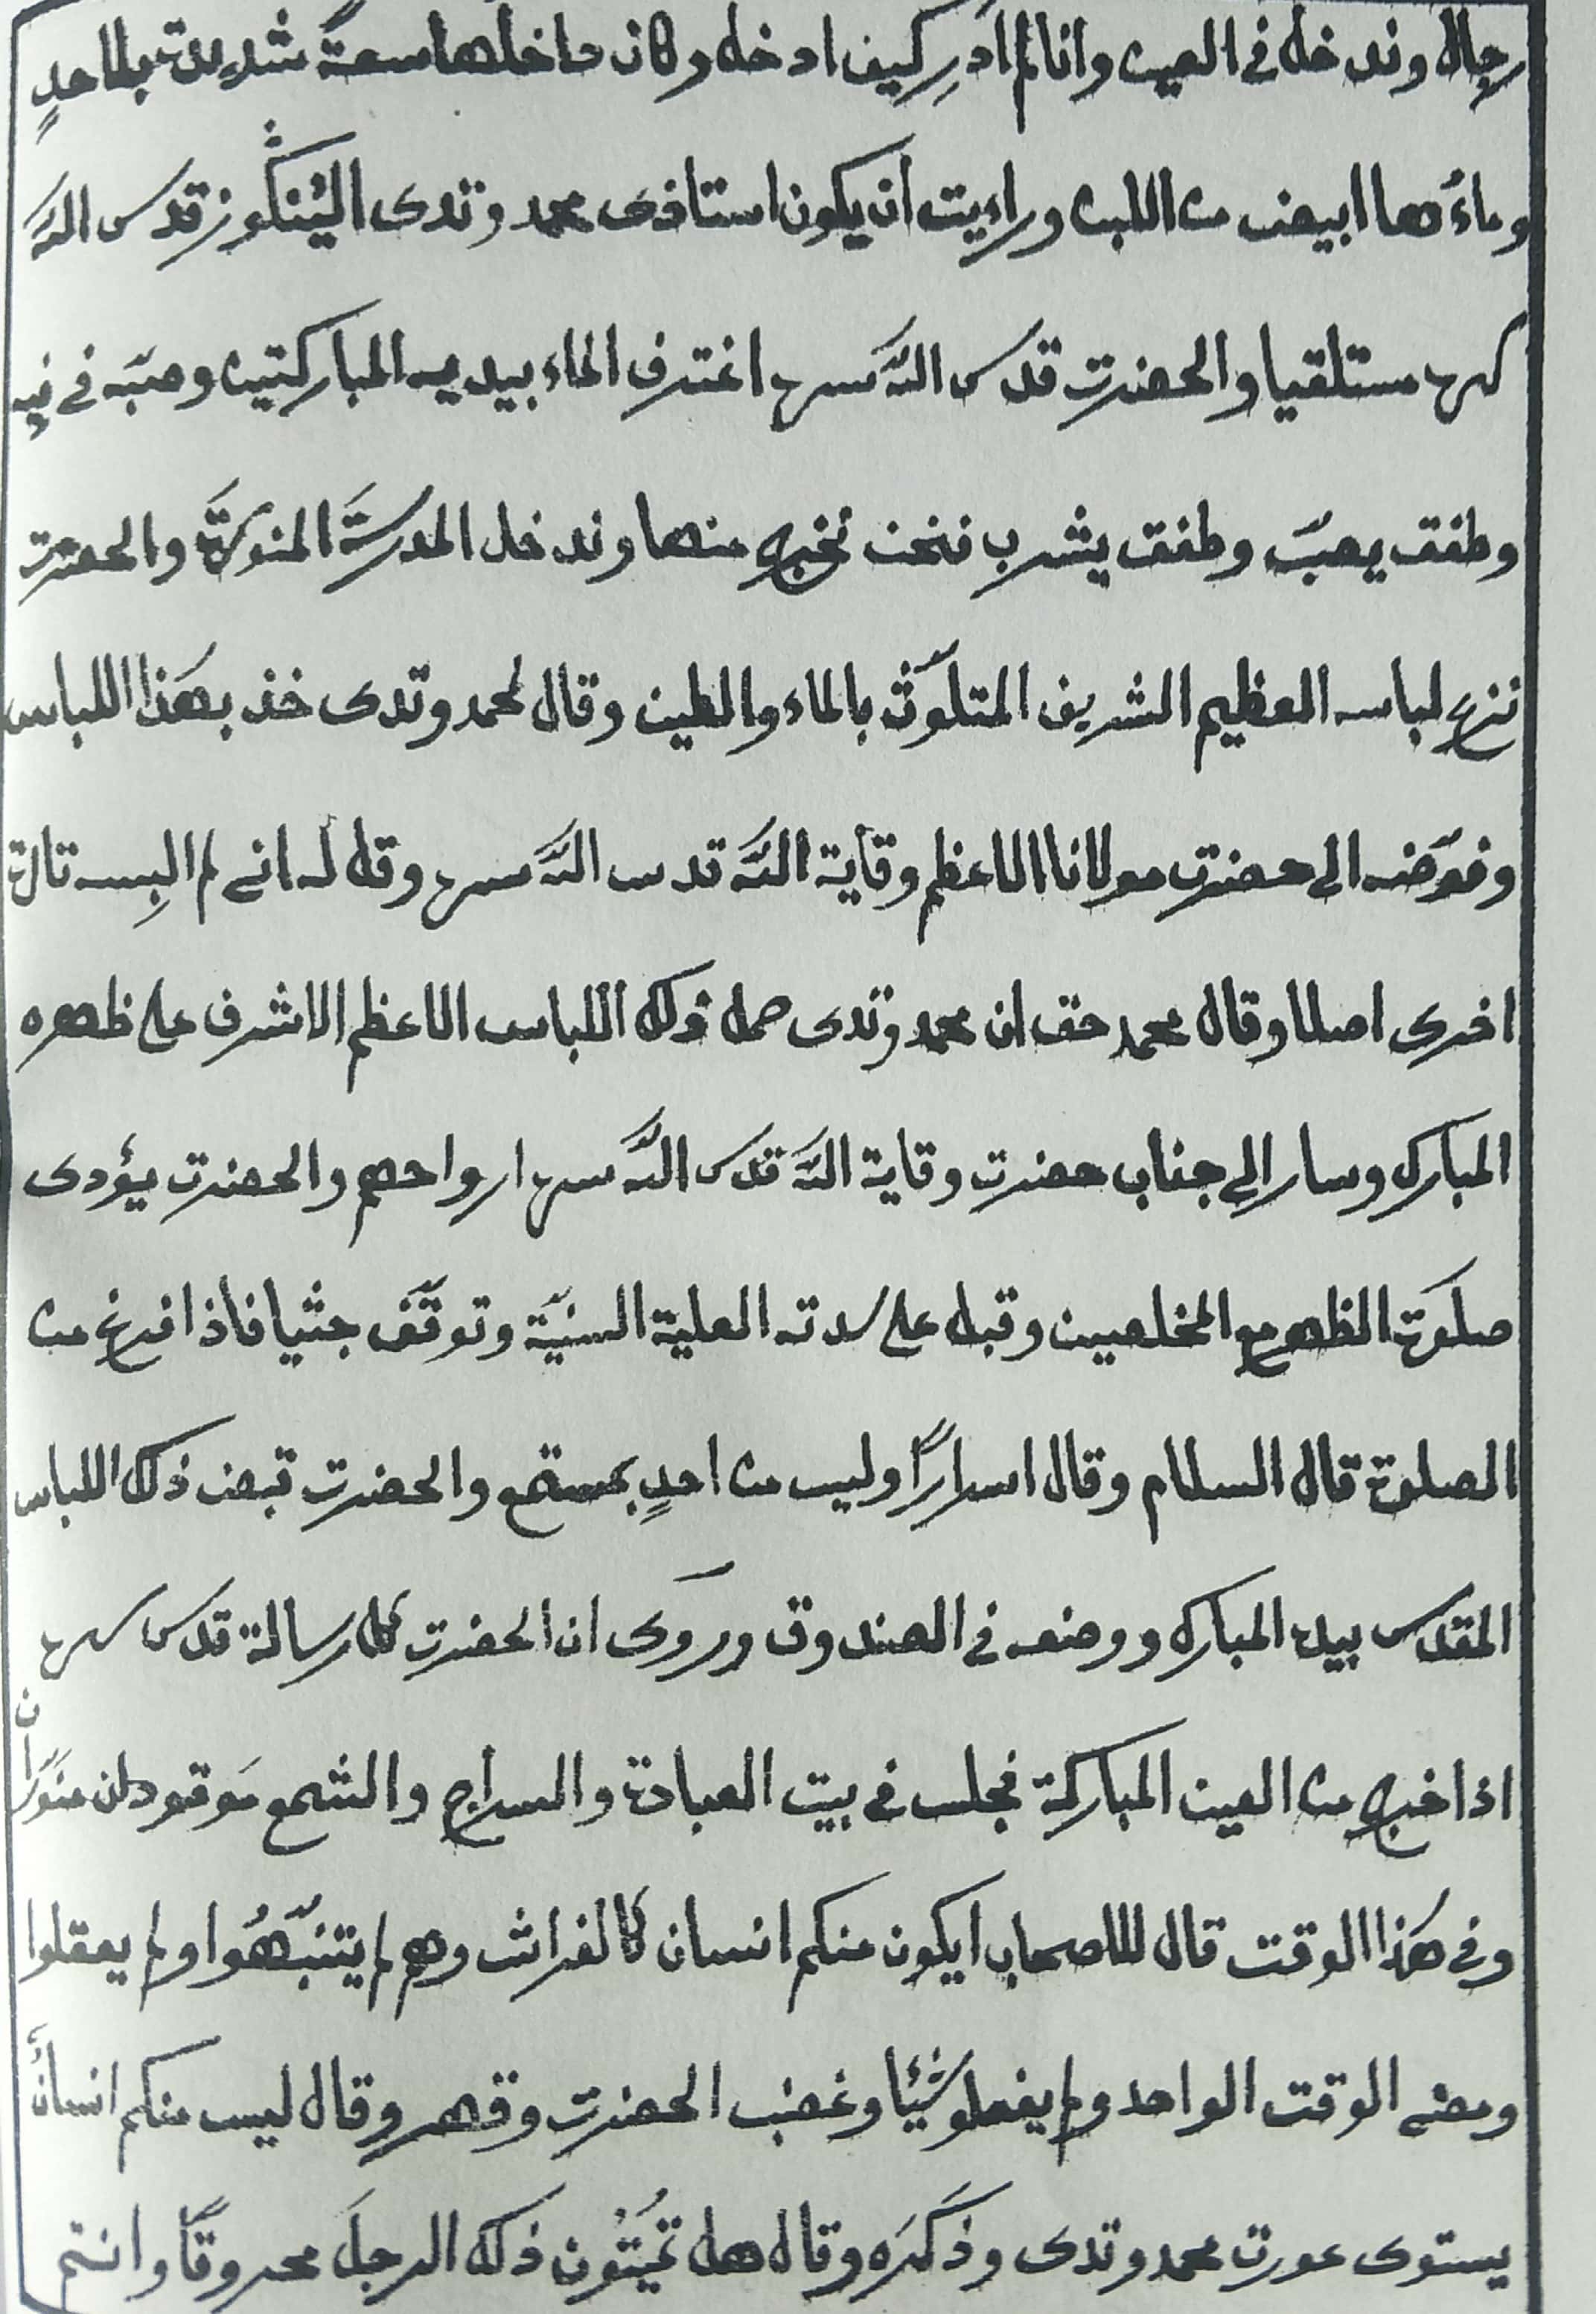 رجال وندخل في العين وانا لم ادرِ كيف ادخل وكان داخلها سعةً شديدة بلا حدٍ
وماءُها ابيض من اللبن وراءيت ان يكون استاذى محمد وتدى الينكوز قدس اللّه
سره مستلقيا والحضرت قدس اللّه سره اغترف الماء بيديه المباركتين وصبّه في فيه
وطفق يصبّ وطفق يشرب فنحن نخرج منها وندخل المدرسَة المنورَة والحضرت
نزع لباسه العظيم الشريف المتلوّث بالماء والطين وقال لمحمد وتدى خذ بهذا اللباس
وفوّضه الى حضرت مولانا الاعظم وقاية اللّه قدس اللّه سره وقل له انى لم البِسه تارة
اخرى اصلا وقال محمد حق ان محمد وتدى حمل ذلك اللباس الاعظم الاشرف على ظهره
المبارك وسار الى جناب حضرت وقاية اللّه قدس اللّه سره ارواحهم والحضرت يؤدى
صلوة الظهر مع المخلصين وقبل على سدته العلية السنيّة وتوقّف جثيا فاذا فرغ من
الصلوة قال السلام وقال اسرارًا وليس من احدٍ بمستمع والحضرت قبض ذلك اللباس
المقدس بيده المبارك ووضعه في الصندوق وروى ان الحضرت كلا رسالة قدس سره
اذا خرج من العين المباركة فجلس في بيت العبادة والسراج والشمع مَوقودان منوّران
وفي هذا الوقت قال للاصحاب ايكون منكم انسان كالفراش وهم لم يتنبّهُوا ولم يعقلوا
ومضى الوقت الواحد ولم يفعلو شيْئا وغضب الحضرت وقهر وقال ليس منكم انسانٌ
يستوى عورت محمد وتدى وذكَرَه وقال هل تمُيتُون ذلك الرجلَ محروقًا وانتم